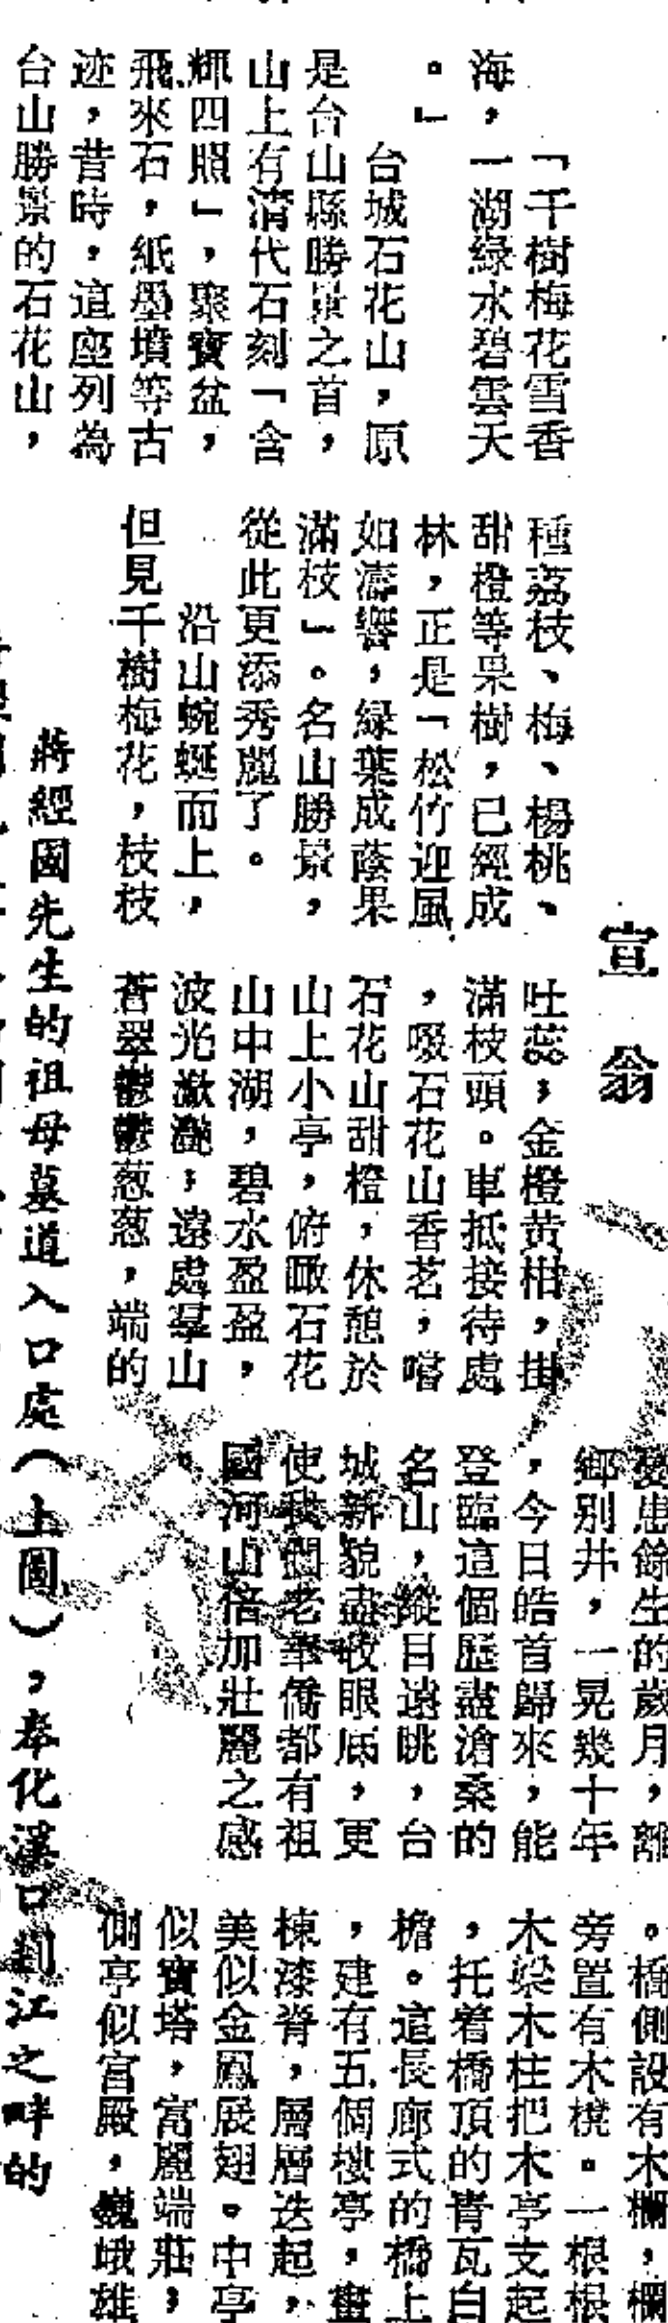 宣翁
「千樹梅花雪香
海，一湖綠水碧雲天
。」
台城石花山，原
是台山縣勝景之首，
山上有清代石刻「含
輝四照」，聚寶盆，
飛來石，紙墨墳等古
迹，昔時，這座列為
台山勝景的石花山，
種荔枝、梅、楊桃、
甜橙等果樹，已經成
林，正是「松竹迎風
如濤響，綠葉成蔭果
滿枝」。名山勝景，
從此更添秀麗了。
沿山蜿蜒而上，
但見千樹梅花，枝枝
吐蕊，金橙黄柑，掛
滿枝頭。車抵接待處
，啜石花山香茗，嚐
石花山甜橙，休憩於
山上小亭，俯瞰石花
山中湖，碧水盈盈，
波光瀲灧，遠處羣山
蒼翠鬱鬱葱葱，端的
憂患餘生的歲月，離
鄉別井，一晃幾十年
，今日皓首歸來，能
登臨這個歷盡滄桑的
名山，縱目遠眺，台
城新貌盡收眼底，更
使我們老華僑都有祖
國河山倍加壯麗之感
。
。橋側設有木欄，欄
旁置有木櫈。一根根
木樑木柱把木亭支起
，托着橋頂的青瓦白
檐。這長廊式的橋上
，建有五個樓亭，畫
棟漆脊，層層迭起，
美似金鳳展翅。中亭
似寶塔，富麗端莊，
側亭似宮殿，巍峨雄
蔣經國先生的祖母墓道入口處（上圖），奉化溪口剡江之畔的